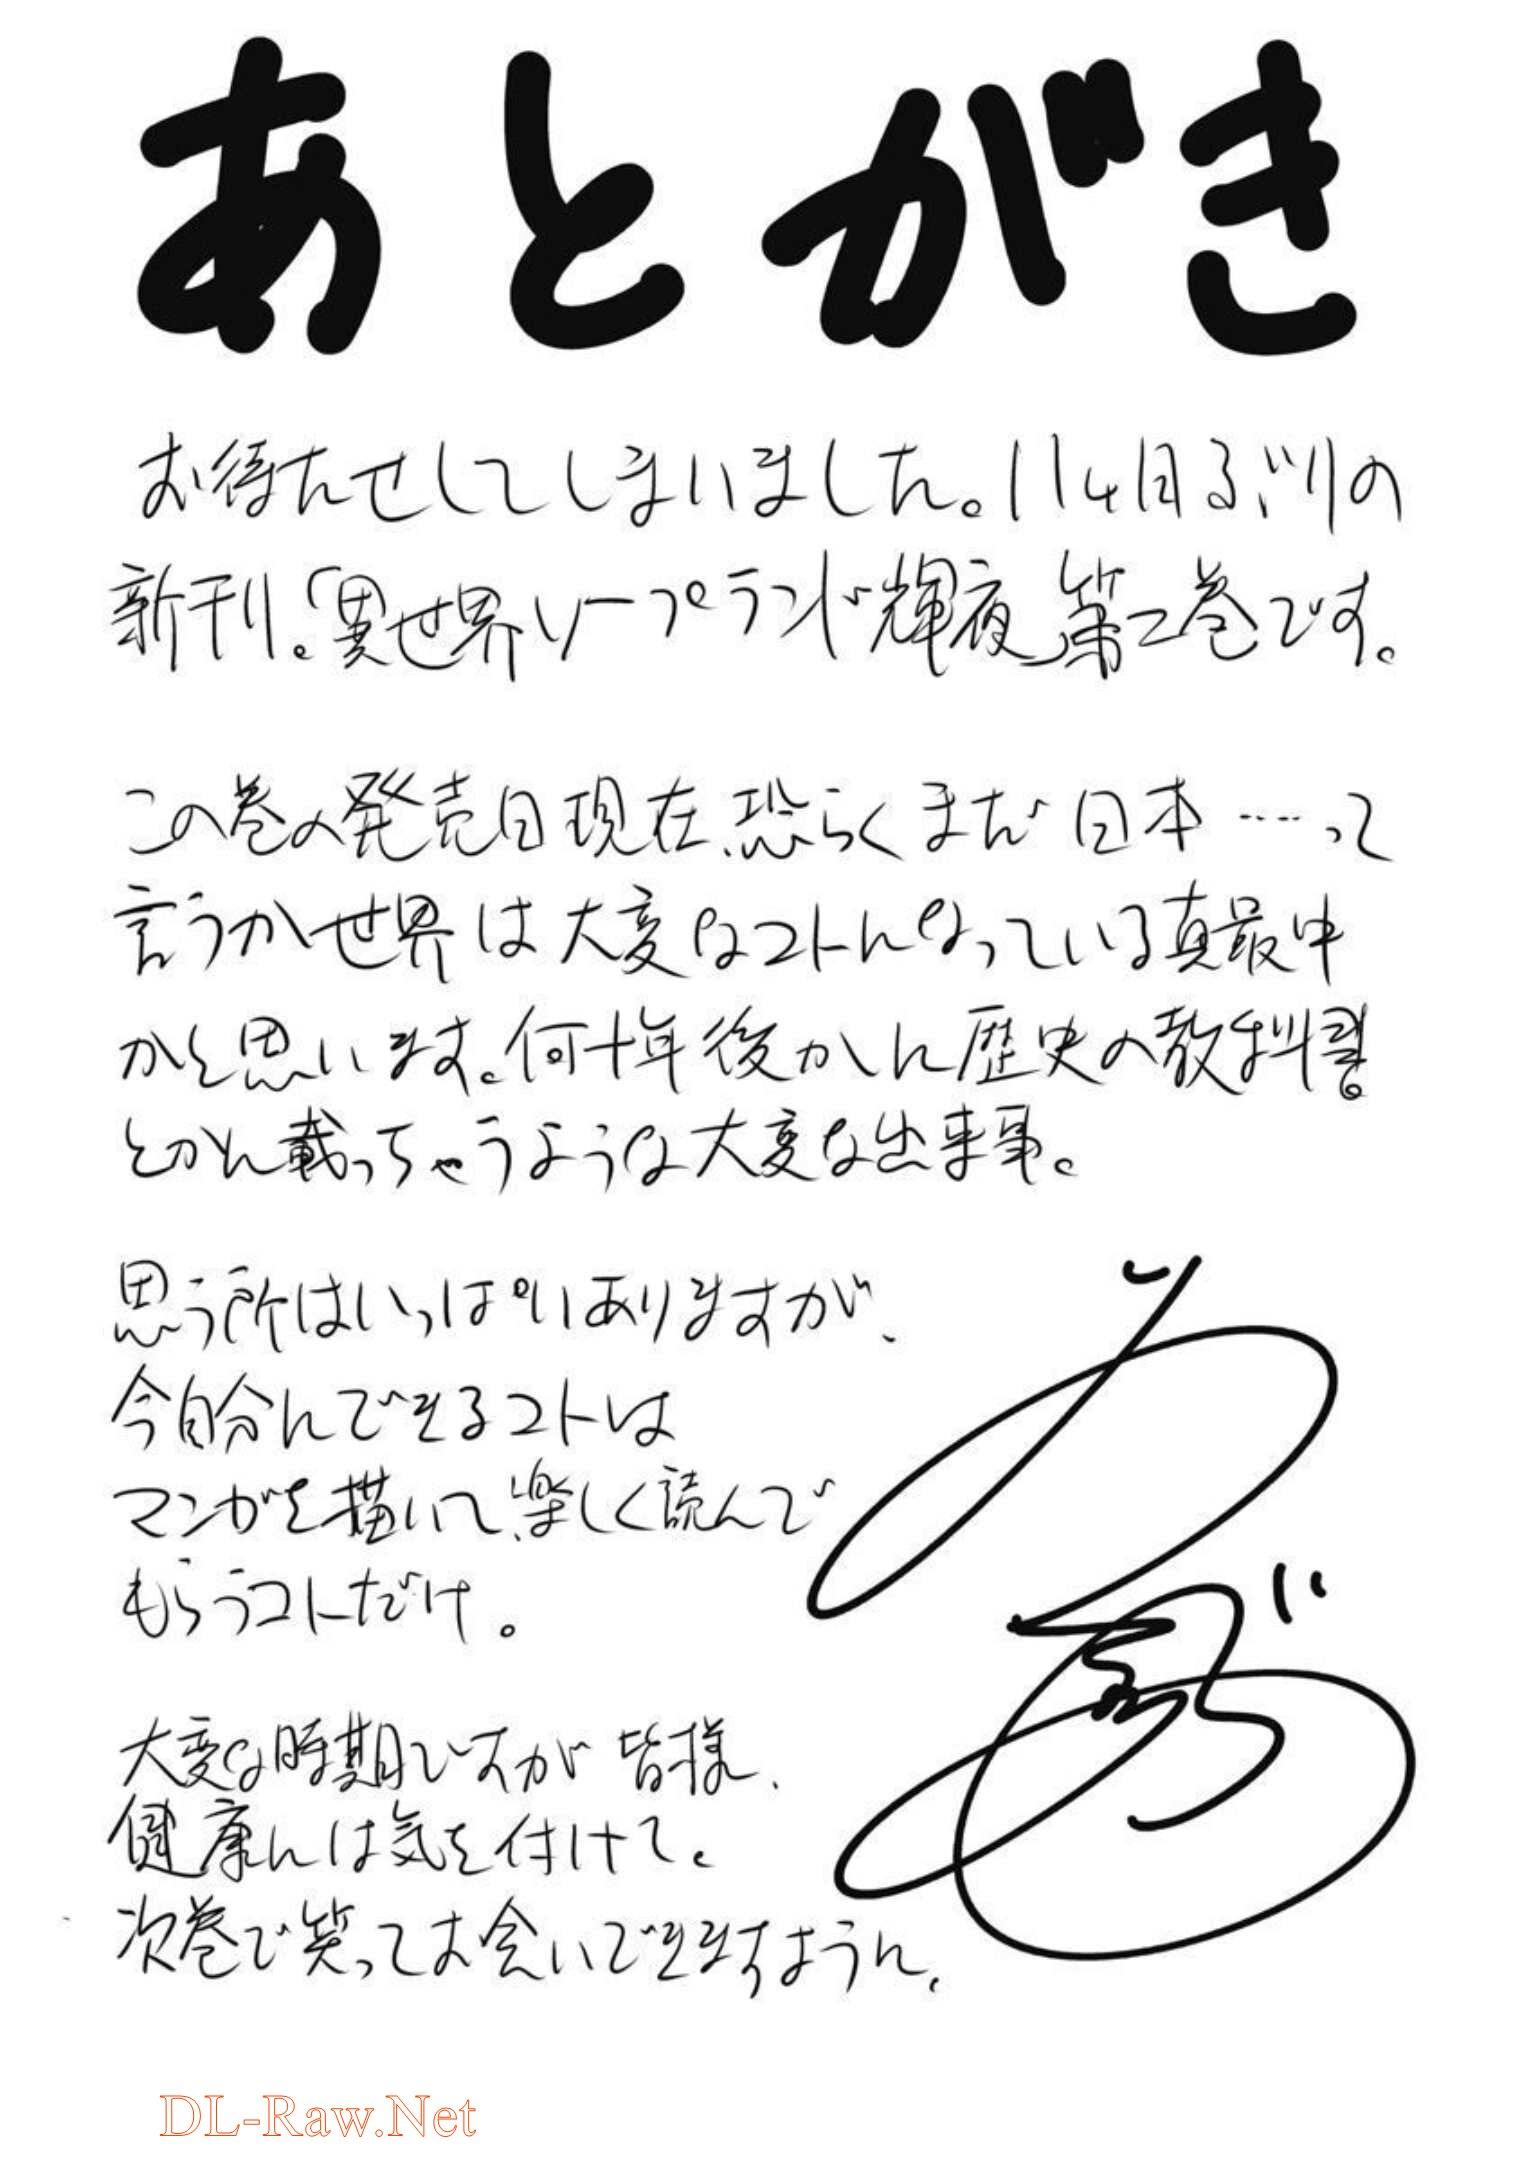 あとがき
お待たせしてしまいました。11ヶ月ぶりの
新刊。「異世界ソープランド輝夜」第二巻です。
この巻の発売日現在、恐らくまだ日本……って
言うか世界は大変なコトになっている真最中
かと思います。何十年後かに歴史の教科書
とかに載っちゃうような大変な出来事。
思う所はいっぱいありますが、
今自分にできるコトは
マンガを描いて、楽しく読んで
もらうコトだけ。
大変な時期ですが皆様、
健康には気を付けて。
次巻で笑ってお会いできますように。
DL-Raw.Net